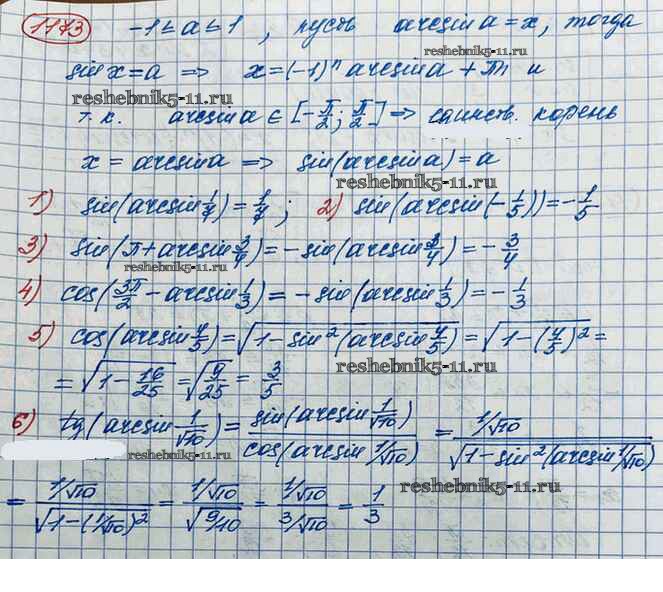 1173 -1 ≤ a ≤ 1, пусть arcsin a = x, тогда
reshebnik5-11.ru
sin x = a => x = (-1)ⁿ arcsin a + πn и
reshebnik5-11.ru
т.к. arcsin a ∈ [-π/2; π/2] => единств. корень
x = arcsin a => sin(arcsin a) = a
reshebnik5-11.ru
1) sin(arcsin 1/4) = 1/4; 2) sin(arcsin(-1/5)) = -1/5
3) sin(π + arcsin 3/4) = -sin(arcsin 3/4) = -3/4
reshebnik5-11.ru
4) cos(3π/2 - arcsin 1/3) = -sin(arcsin 1/3) = -1/3
5) cos(arcsin 4/5) = √(1 - sin²(arcsin 4/5)) = √(1 - (4/5)²) =
reshebnik5-11.ru
= √(1 - 16/25) = √(9/25) = 3/5
6) tg(arcsin 1/√10) = sin(arcsin 1/√10) / cos(arcsin 1/√10) = 1/√10 / √(1 - sin²(arcsin 1/√10))
reshebnik5-11.ru
reshebnik5-11.ru
= 1/√10 / √(1 - (1/√10)²) = 1/√10 / √(9/10) = 1/√10 / 3/√10 = 1/3